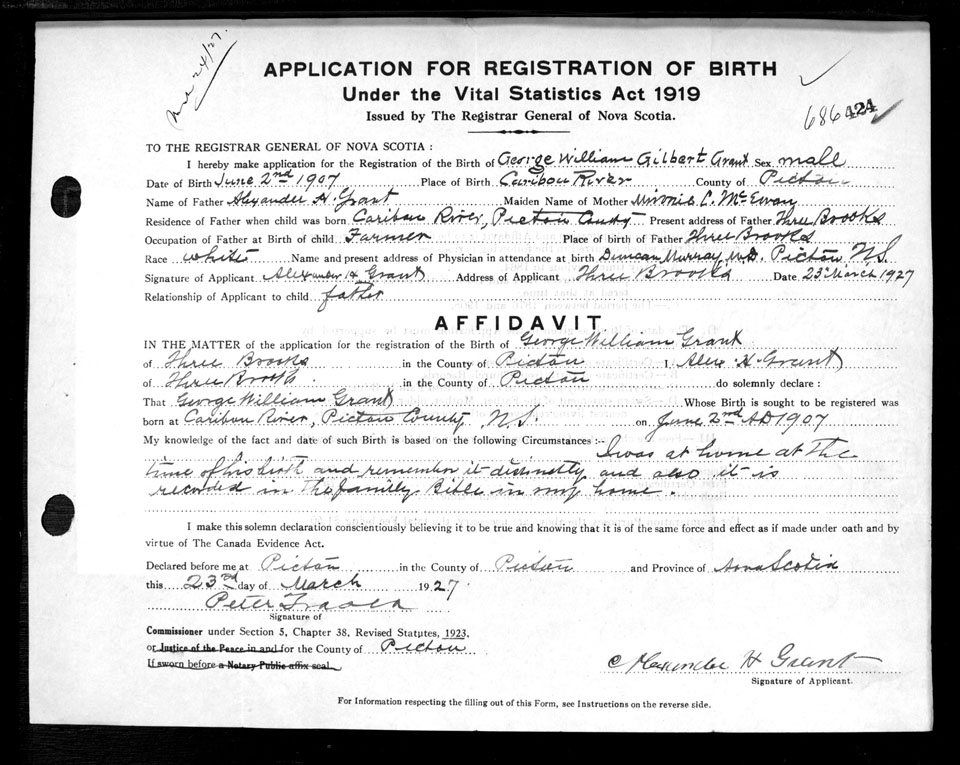 Mch 24/27.
APPLICATION FOR REGISTRATION OF BIRTH
Under the Vital Statistics Act 1919
Issued by The Registrar General of Nova Scotia.
686 424
TO THE REGISTRAR GENERAL OF NOVA SCOTIA :
I hereby make application for the Registration of the Birth of George William Gilbert Grant Sex male
Date of Birth June 2nd 1907 Place of Birth Caribou River County of Pictou
Name of Father Alexander H. Grant Maiden Name of Mother Minnie C. McEwan
Residence of Father when child was born Caribou River, Pictou County Present address of Father Three Brooks
Occupation of Father at Birth of child Farmer Place of birth of Father Three Brooks
Race white Name and present address of Physician in attendance at birth Duncan Murray, M.D. Pictou N.S.
Signature of Applicant Alexander H Grant Address of Applicant Three Brooks Date 23rd March 1927
Relationship of Applicant to child father
AFFIDAVIT
IN THE MATTER of the application for the registration of the Birth of George William Grant
of Three Brooks in the County of Pictou I, Alex. H. Grant
of Three Brooks. in the County of Pictou do solemnly declare :
That George William Grant Whose Birth is sought to be registered was
born at Caribou River, Pictou County, N.S. on June 2nd AD 1907
My knowledge of the fact and date of such Birth is based on the following Circumstances :-- I was at home at the
time of his birth and remember it distinctly and also it is
recorded in the family Bible in my home.
I make this solemn declaration conscientiously believing it to be true and knowing that it is of the same force and effect as if made under oath and by
virtue of The Canada Evidence Act.
Declared before me at Pictou in the County of Pictou and Province of Nova Scotia
this 23rd day of March 1927
Peter Fraser
Signature of
Commissioner under Section 5, Chapter 38, Revised Statutes, 1923,
or Justice of the Peace in and for the County of Pictou
If sworn before a Notary Public affix seal.
Alexander H Grant
Signature of Applicant.
For Information respecting the filling out of this Form, see Instructions on the reverse side.